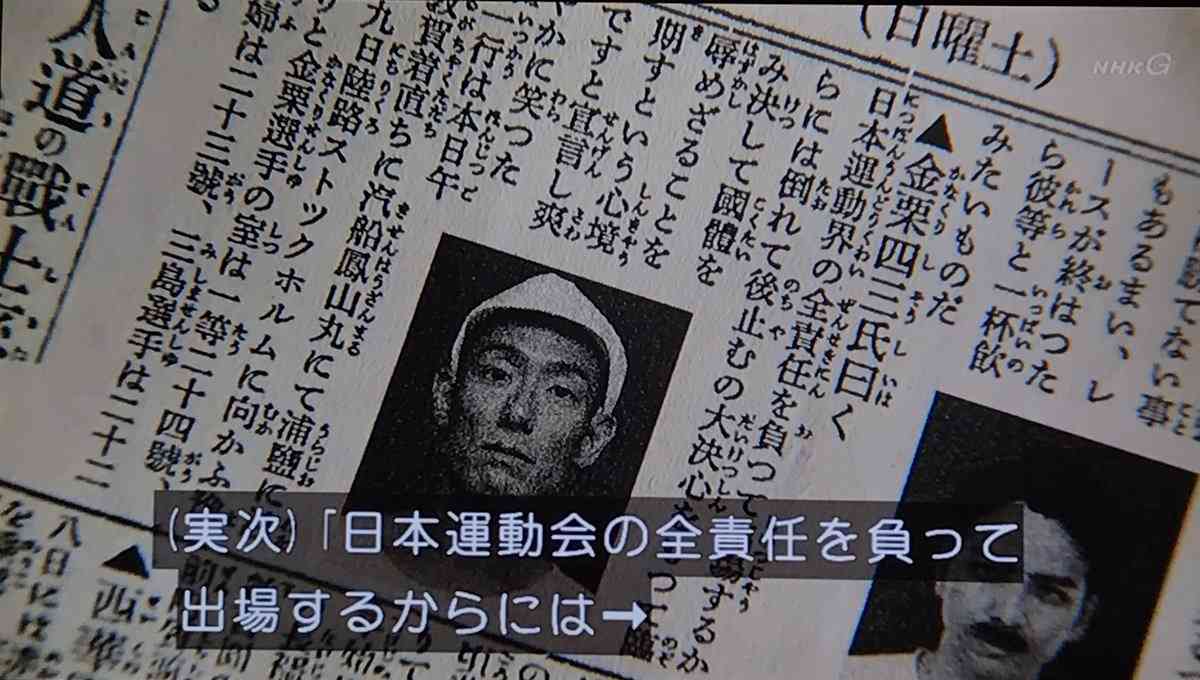 NHK G
(日曜土)
題でない事
もあるまい、レ
ースが終はつた
ら彼等と一杯飲
みたいものだ
▲金栗四三氏曰く
日本運動界の全責任を負つて 場するか
らには倒れて後止むの大決心を つて臨
み決して國體を
辱めざることを
期すという心境
ですと宣言し爽
かに笑つた
一行は本日午
敦賀着直ちに汽船鳳山丸にて浦鹽に
九日陸路ストックホルムに向かふ
りと金栗選手の室は一等二十四號、
婦は二十三號、三島選手は二十二
人道の戰士
▲西
八日には
(実次)「日本運動会の全責任を負って
出場するからには→